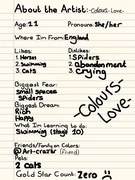 About the Artist: -Colours-Love-
Age: 11 Pronouns: She/her
Where I'm From: England
Likes: Dislikes:
1. Horses 1. Spiders
2. Swimming 2. abandonment
3. Cats 3. Crying
Biggest Fear:
Small spaces
Spiders
Biggest Dream:
Rich
Happy
What I'm Learning to do:
Swimming (stage 10)
Friends/Family on Colors:
@Art-creator (friend)
Pets:
2 cats
Gold Star Count: Zero
Colours-
Love-